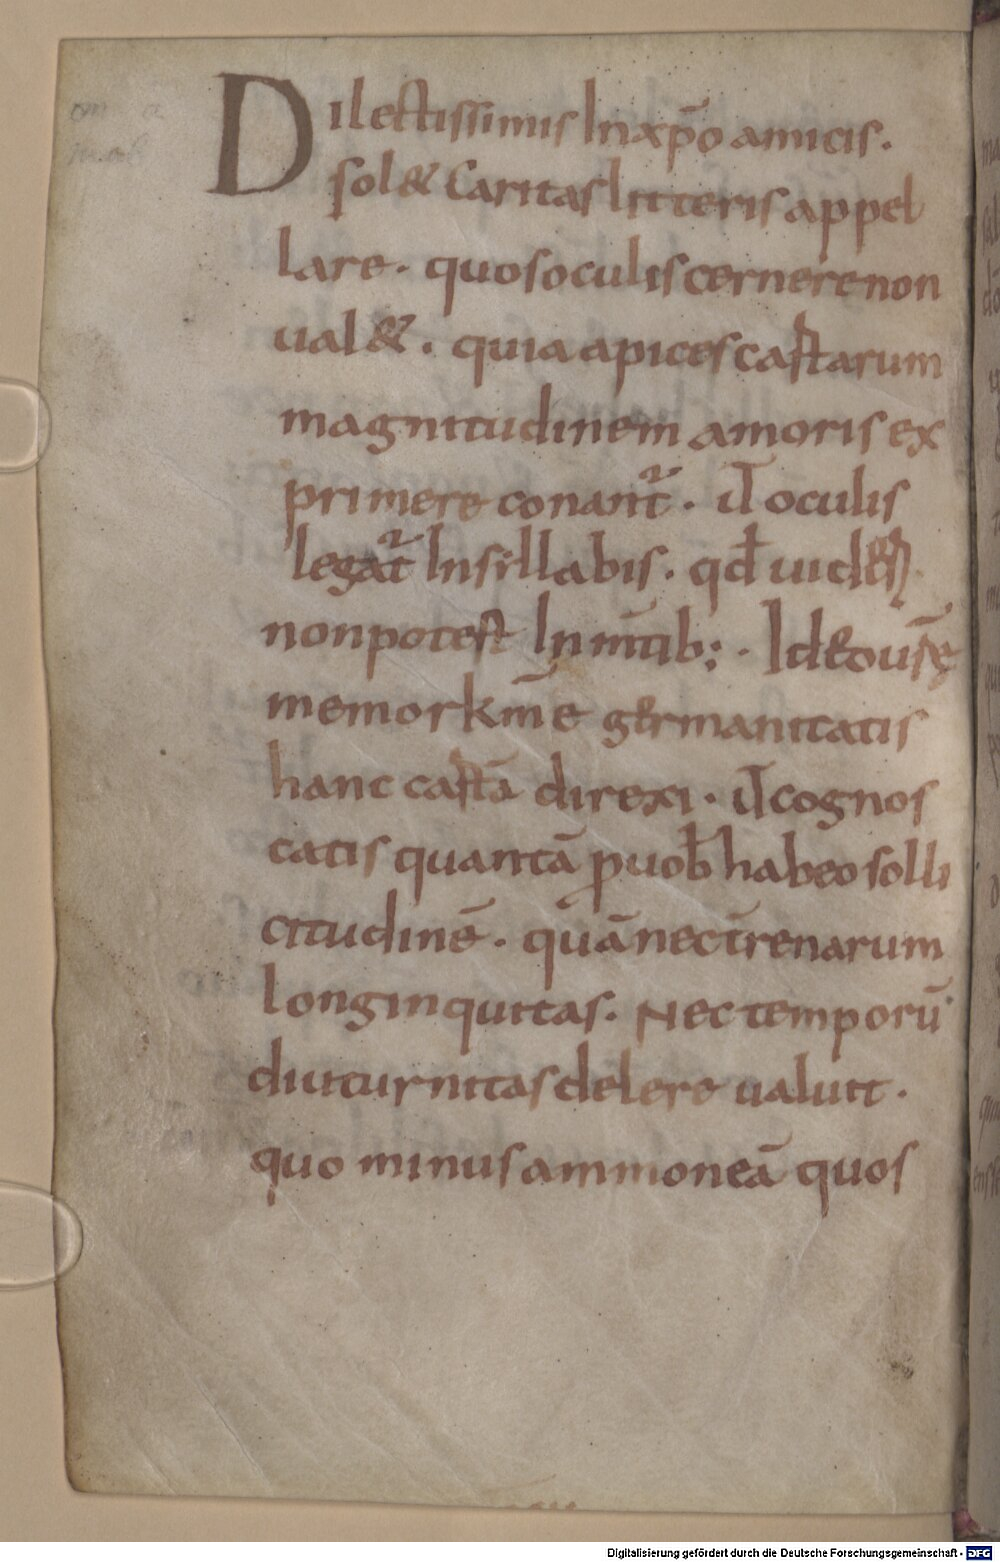 Dilectissimis In xp̄o amicis.
sol& Caritas litteris appel
lare. quos oculis cernere non
ual&. quia apices castarum
magnitudinem amoris ex
primere conant᷑. ut̄ oculis
legat᷑ In sillabis. qđ uid&ꝶ
non potest In mtīb;. Id& ousr̄ę
memor km̄e germanitatis
hanc castā direxi. ut̄ cognos
catis quantā ꝓ uob̄ habeo solli
citudinē. quā nec tr̄enarum
longinquitas. Nec temporū
diuturnitas delere ualuit.
quo minus ammoneā quos
Digitalisierung gefördert durch die Deutsche Forschungsgemeinschaft - DFG